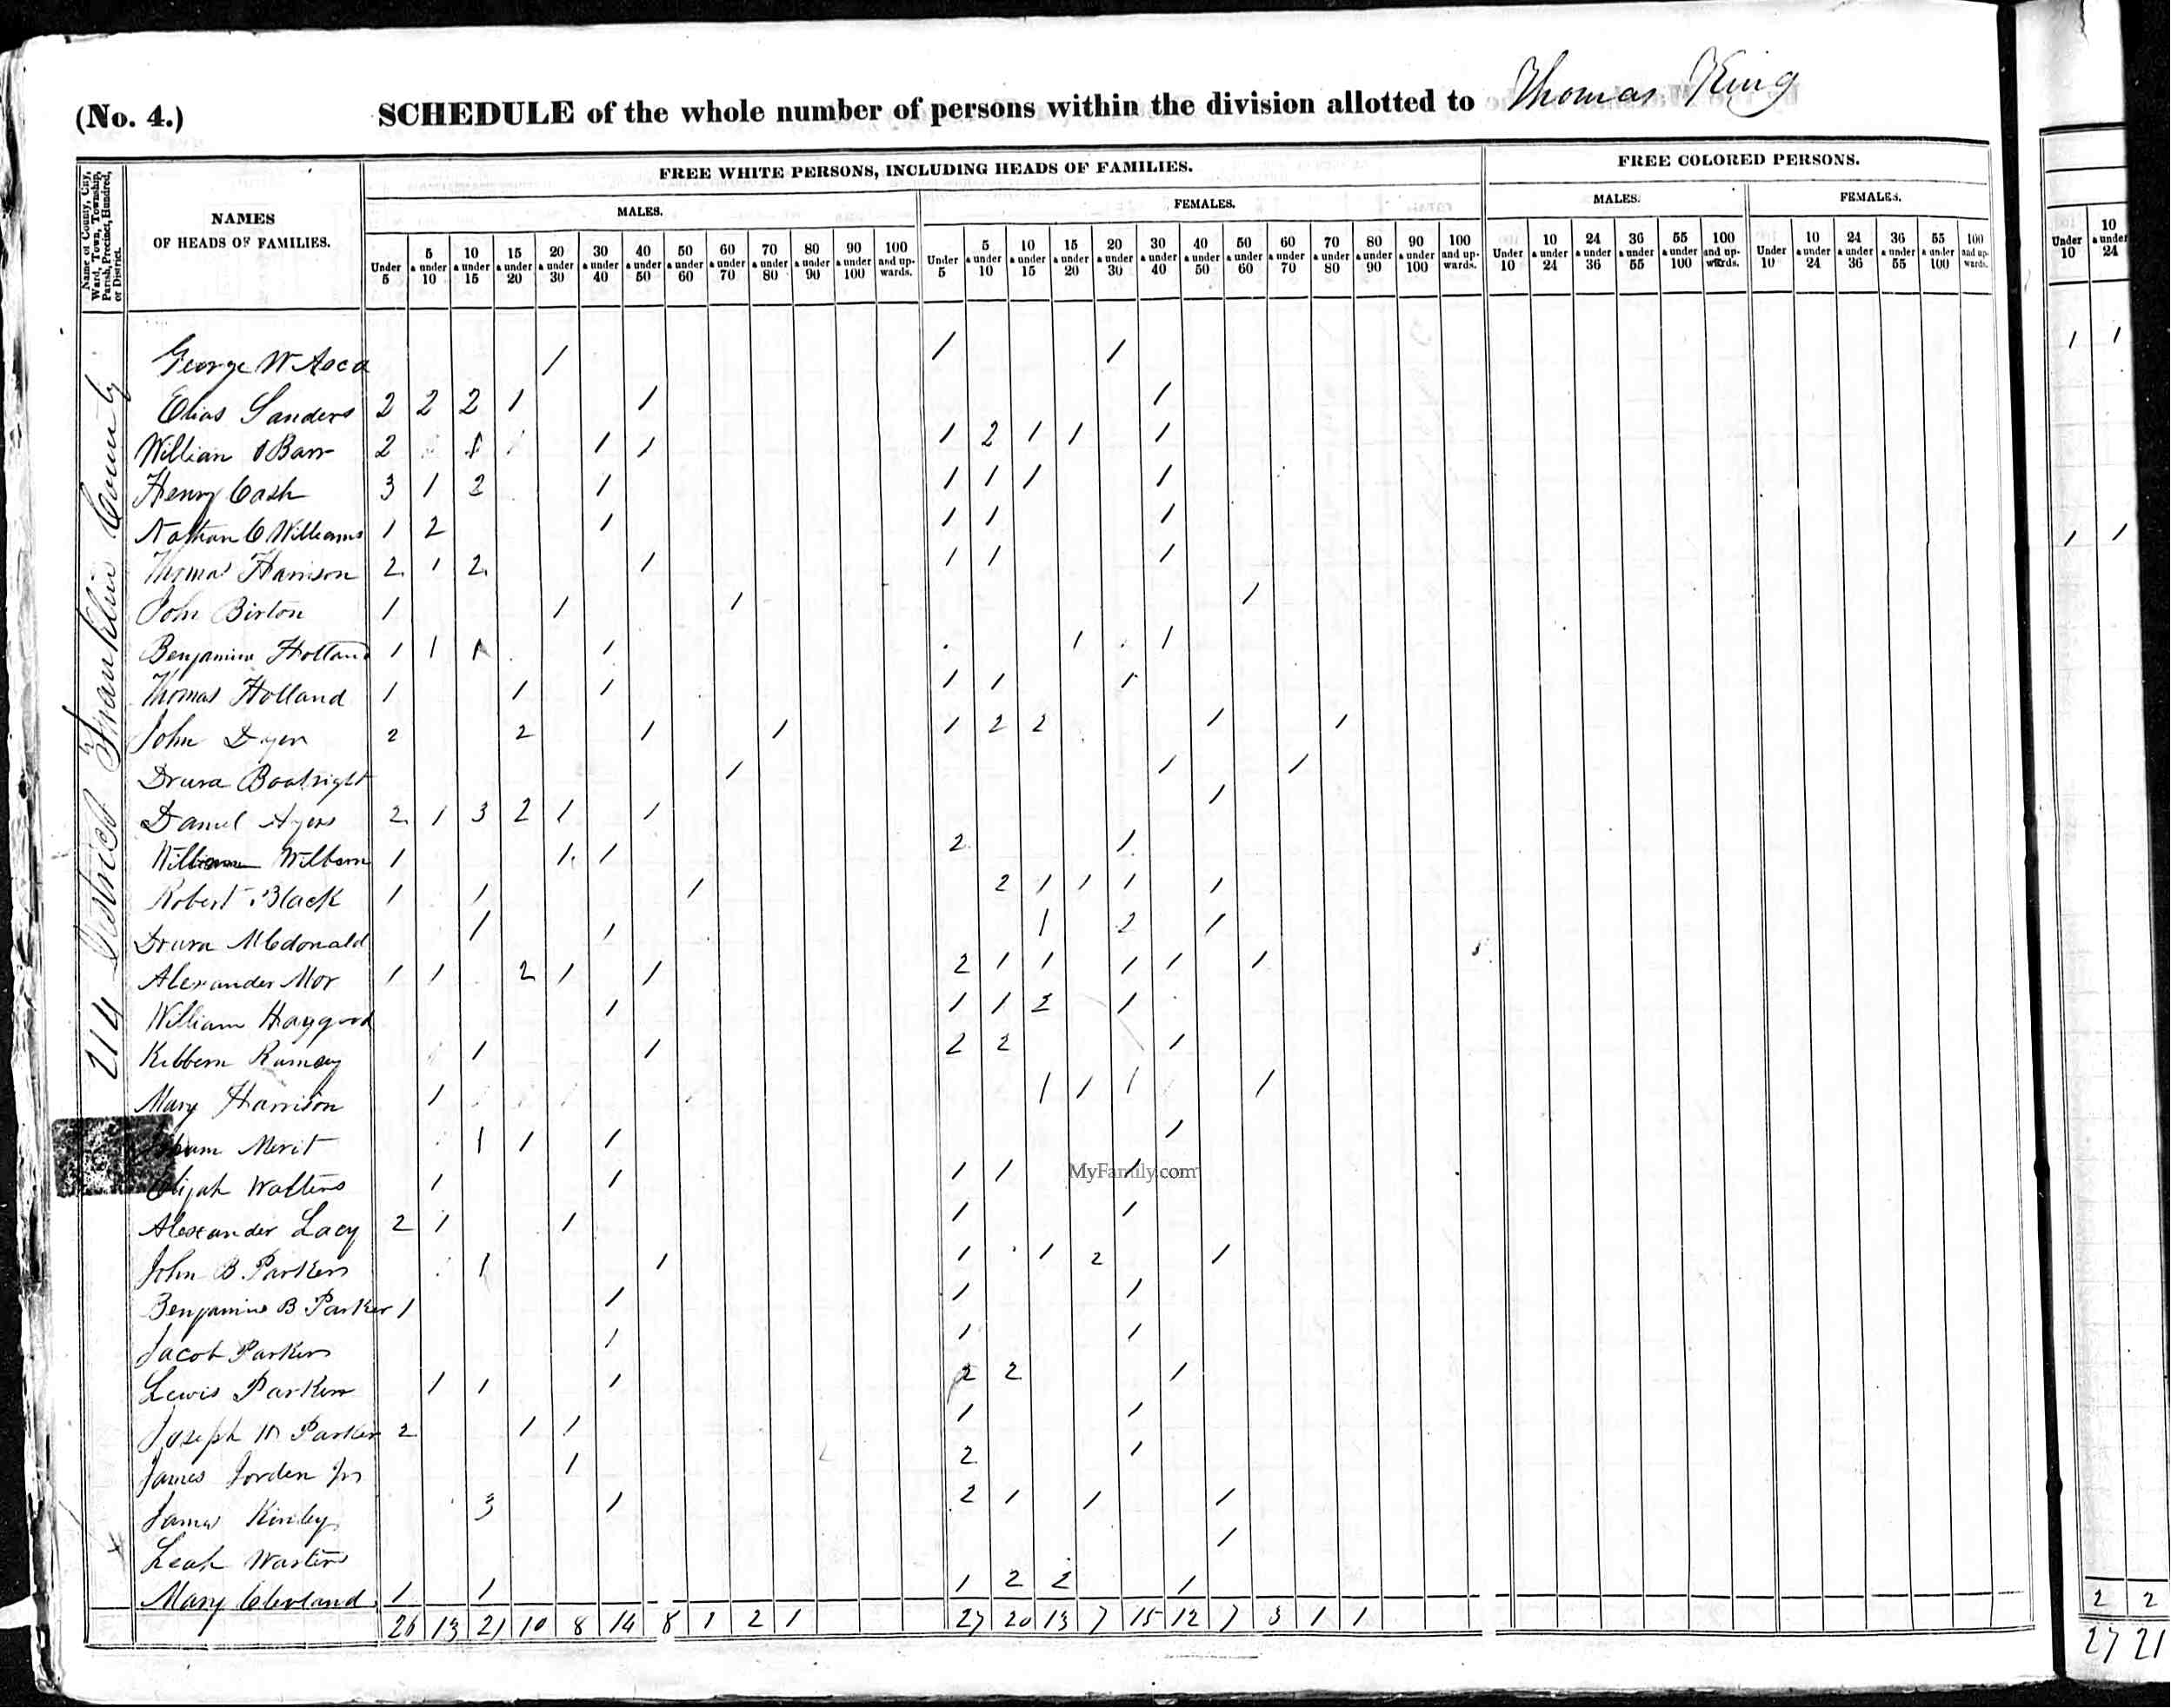 (No. 4.) SCHEDULE of the whole number of persons within the division allotted to Thomas King
Name of County, City, Ward, Town, Township, Parish, Precinct, Hundred, or District.
NAMES
OF HEADS OF FAMILIES.
FREE WHITE PERSONS, INCLUDING HEADS OF FAMILIES.
FREE COLORED PERSONS.
MALES. FEMALES. MALES. FEMALES.
Under 5 5 & under 10 10 & under 15 15 & under 20 20 & under 30 30 & under 40 40 & under 50 50 & under 60 60 & under 70 70 & under 80 80 & under 90 90 & under 100 100 and upwards. Under 5 5 & under 10 10 & under 15 15 & under 20 20 & under 30 30 & under 40 40 & under 50 50 & under 60 60 & under 70 70 & under 80 80 & under 90 90 & under 100 100 and upwards. Under 10 10 & under 24 24 & under 36 36 & under 55 55 & under 100 100 and upwards. Under 10 10 & under 24 24 & under 36 36 & under 55 55 & under 100 100 and upwards. Under 10 10 & under 24
214 District Franklin County
George W 1 1 1 1 1
Elias Sanders 2 2 2 1 1 1
William Barr 2 1 1 1 1 2 1 1 1
Henry Cash 3 1 2 1 1 1 1 1
Nathan C Williams 1 2 1 1 1 1 1 1
Thomas Harrison 2 1 2 1 1 1 1
John Birton 1 1 1 1
Benjamin Holland 1 1 1 1 1 1
Thomas Holland 1 1 1 1 1 1
John Dyer 2 2 1 1 1 2 2 1 1
Drura Boatright 1 1 1
Daniel Ayers 2 1 3 2 1 1 1
William Wilborn 1 1 1 2 1
Robert Black 1 1 1 2 1 1 1 1
Drura McDonald 1 1 1 2 1
Alexander Mor 1 1 2 1 1 2 1 1 1 1 1
William Haygood 1 1 1 2 1
Kibbern Ramsey 1 1 2 2 1
Mary Harrison 1 1 1 1 1
Merit 1 1 1 1
Elijah Walters 1 1 1 1 1
MyFamily.com
Alexander Lacy 2 1 1 1 1
John B. Parker 1 1 1 1 2 1
Benjamin B Parker 1 1 1 1
Jacob Parker 1 1 1
Lewis Parker 1 1 1 2 2 1
Joseph M Parker 2 1 1 1 1
James Jorden Jr 1 2 1
James Kinley 3 1 2 1 1 1
Leah Warters 1
Mary Clevland 1 1 1 2 2 1 2 2
26 13 21 10 8 14 8 1 2 1 27 20 13 7 15 12 7 3 1 1 27 21